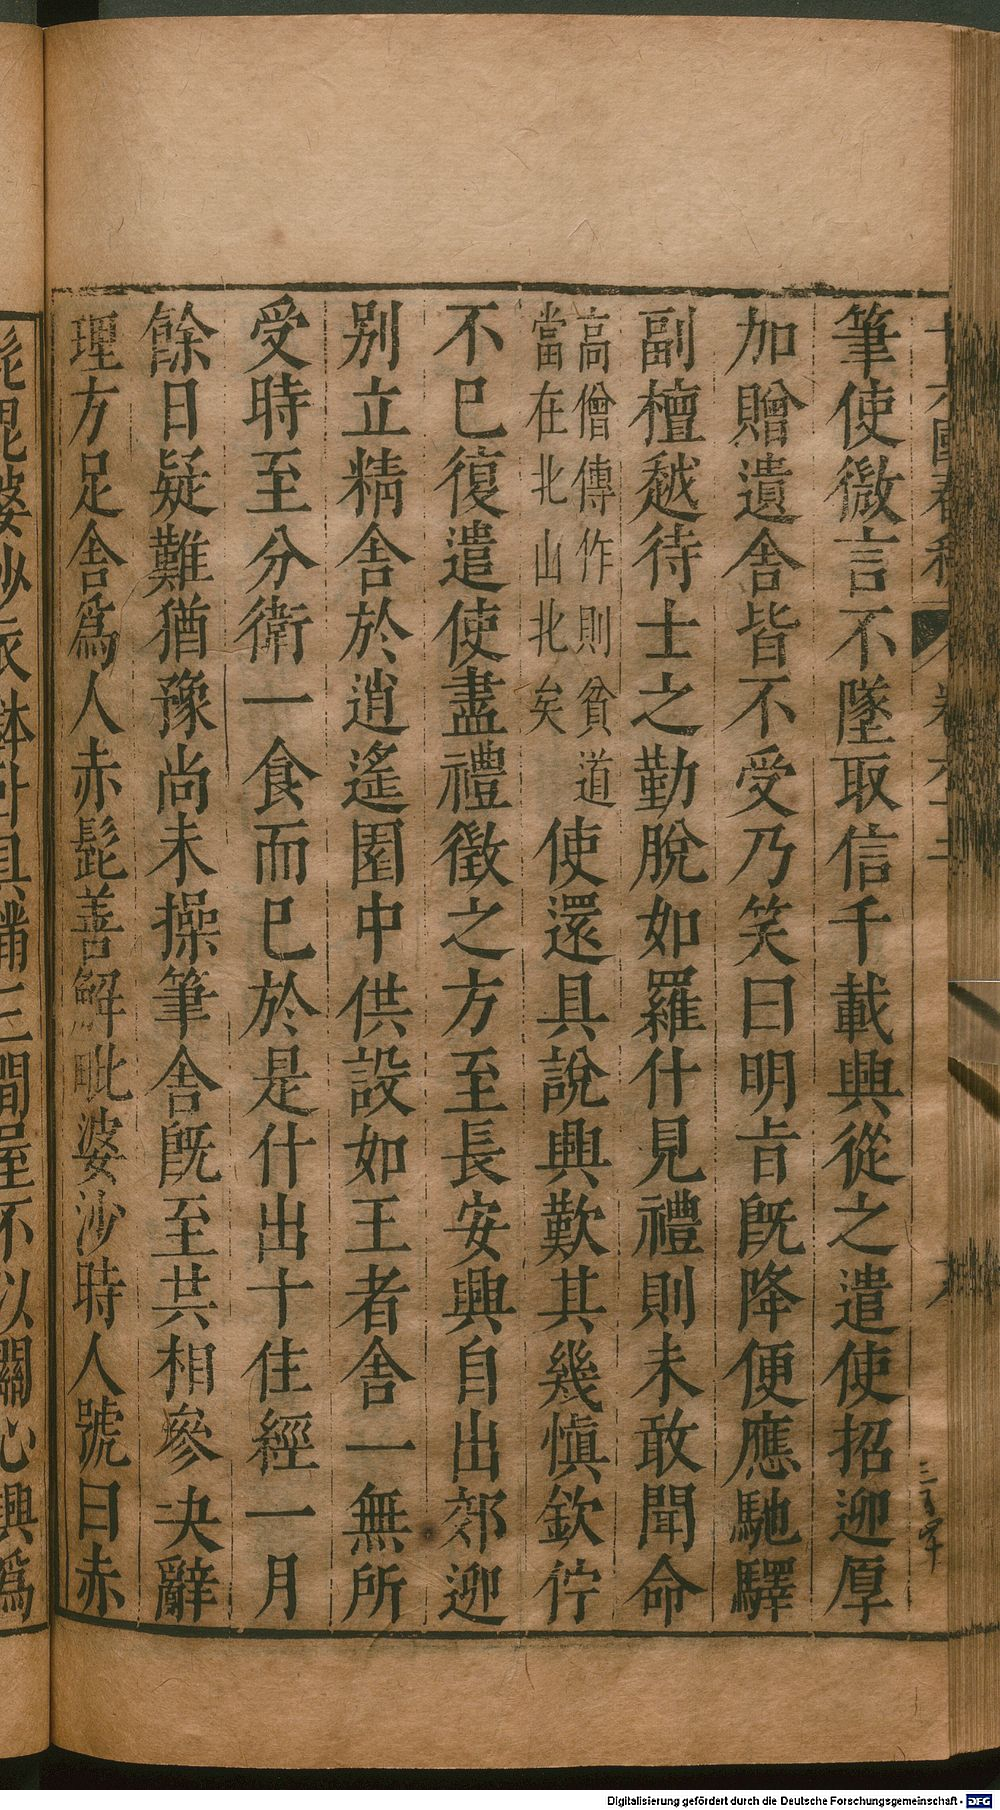 筆使微言不墜取信千載興從之遣使招迎厚
加贈遺舍皆不受乃笑曰明旨既降便應馳驛
副檀越待士之勤脫如羅什見禮則未敢聞命
高僧傳作則貧道
當在北山北矣
使還具說興歎其幾慎欽佇
不已復遣使盡禮徵之方至長安興自出郊迎
別立精舍於逍遙園中供設如王者舍一無所
受時至分衛一食而已於是什出十住經一月
餘日疑難猶豫尚未操筆舍既至共相參決辭
理方足舍爲人赤髭善解毗婆沙時人號曰赤
髭毘婆沙衣鉢什具滿三間屋不以關心興爲
Digitalisierung gefördert durch die Deutsche Forschungsgemeinschaft - DFG